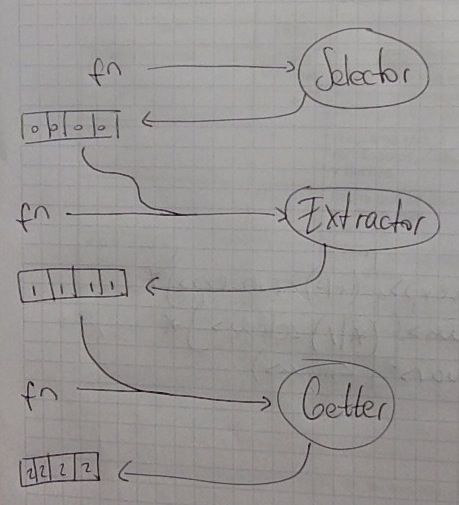 fn Selector
0 0 0 0
fn Extractor
1 1 1 1
fn Getter
2 2 2 2